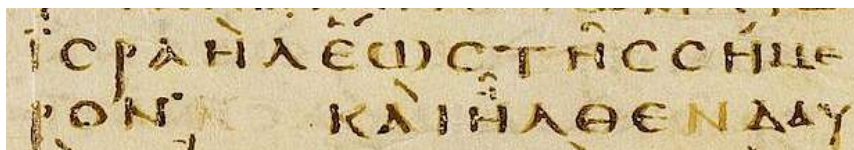 ΪϹΡΑῊΛἝΩϹΤΗ͂ϹϹΉΜΕ
ΡΟΝ· ΚΑῚἮΛΘΕΝΔΑΥ